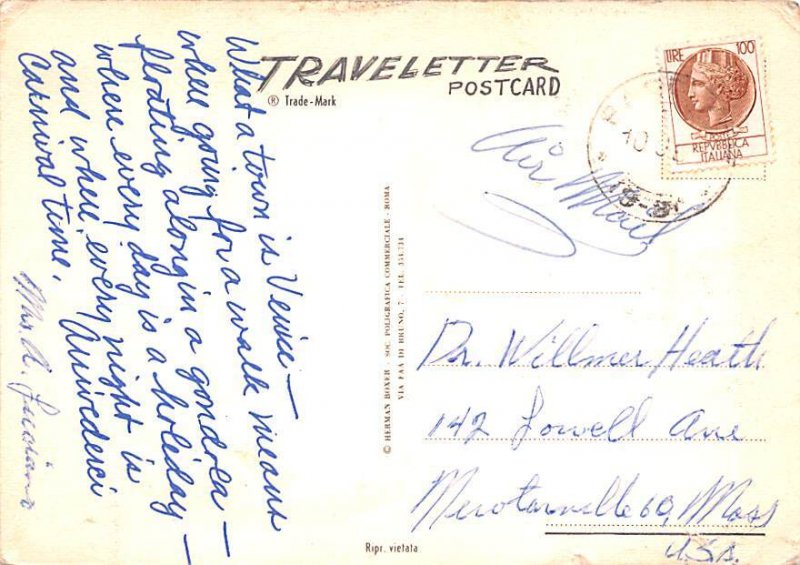 TRAVELETTER
POSTCARD
® Trade-Mark
What a town is Venice —
when going for a walk means
floating along in a gondola —
where every day is a holiday —
and where every night is
Carnival time.
Arrivederci
Mrs. A.
© HERMAN BOXER - SOC. POLIGRAFICA COMMERCIALE - ROMA
VIA FRA DI BRUNO, 7 - TEL. 354.734
Ripr. vietata
LIRE 100
REPVBBLICA
ITALIANA
Air Mail
Dr. Willmer Heath
142 Lowell Ave
60, Mass
U.S.A.